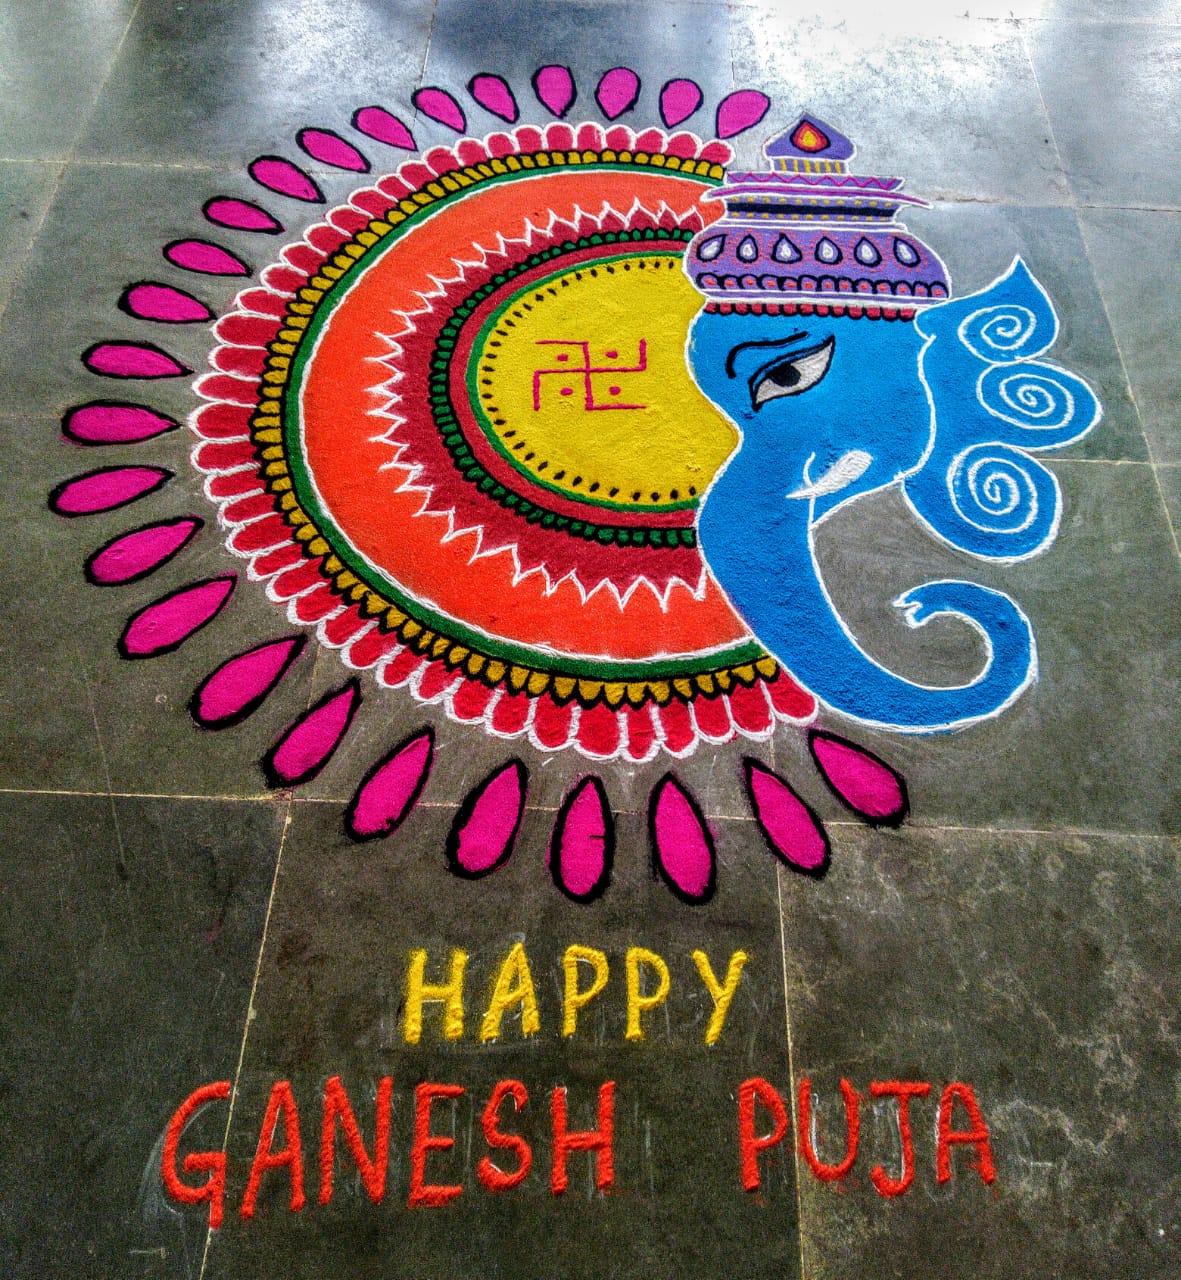 HAPPY
GANESH PUJA